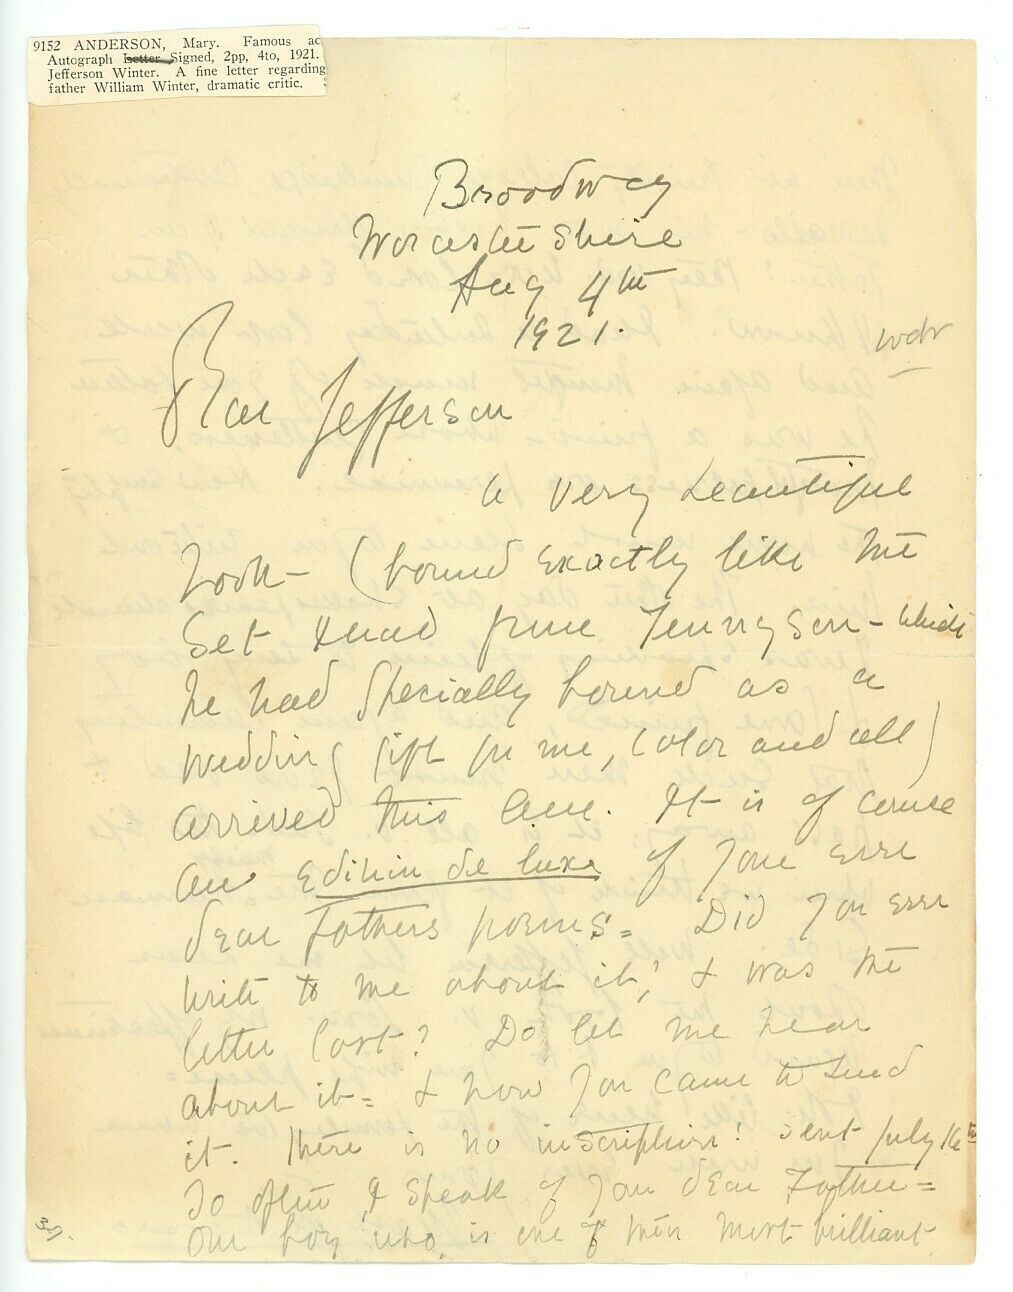 9152 ANDERSON, Mary. Famous ac
Autograph Letter Signed, 2pp, 4to, 1921.
Jefferson Winter. A fine letter regarding
father William Winter, dramatic critic.
Broadway
Worcestershire
Aug 4th
1921.
wdr
Dear Jefferson
a very beautiful
book – (bound exactly like the
set I had from Tennyson – which
he had specially bound as a
wedding gift for me, color and all)
arrived this
It is of course
an edition de luxe of your ever
dear Fathers poems = Did you ever
write to me about it, & was the
letter lost? Do let me hear
about it = & how you came to send
it. There is no inscription! Sent July 16th
So often I speak of your dear Father =
Our boy who is one of the most brilliant